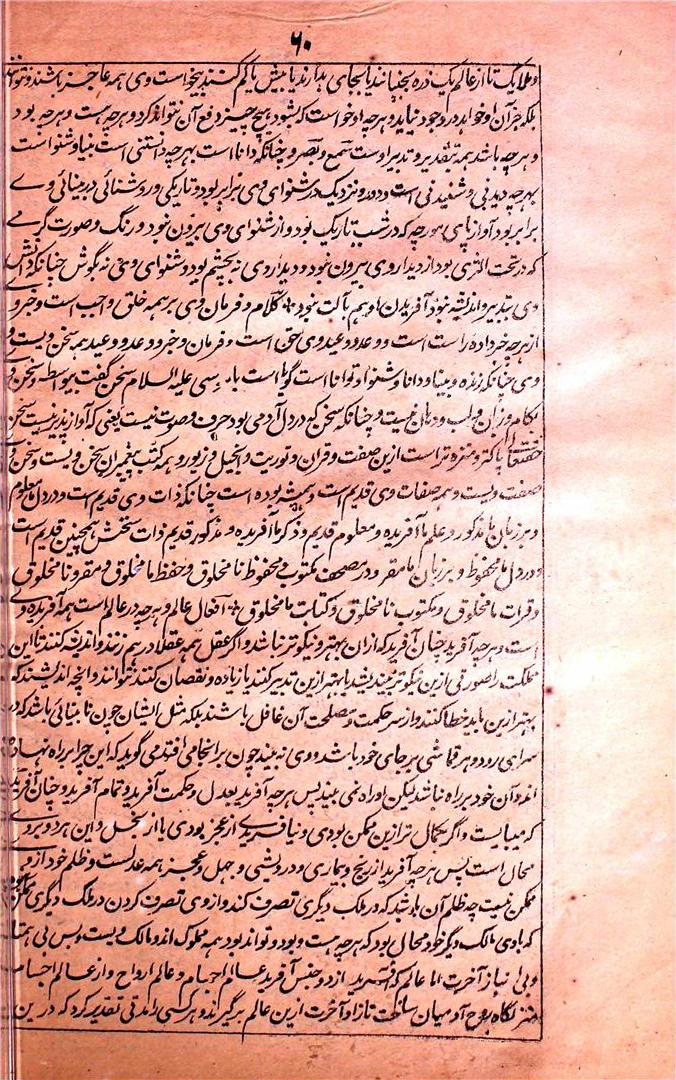 ۶۰
و ملایک تا از عالم یک ذره بجنبانند یا بجای بدارند یا بیش یا کم کنند بیخواست وی همه عاجز باشند و نتوانند
بلکه جز آن او خواهد در وجود نیاید و هرچه او خواست که بشود هیچ چیز دفع آن نتواند کرد و هرچه هست و هرچه بود
و هرچه باشد همه بتقدیر و تدبیر اوست سمع و بصر و چنانکه دانا است بهرچه دانستنی است بینا و شنوا است
بهرچه دیدنی و شنیدنی است و دور و نزدیک در شنوای وی برابر بود و تاریکی و روشنائی در بینائی وے
برابر بود آواز پای مورچه که در شب تاریک بود و از شنوای وی بیرون نبود و رنگ و صورت کرمے
که در تحت الثری بود از دیدار وی بیرون نبود و دیدار وی نه بچشم بود و شنوای وی نه بگوش چنانکه دانش
وی بتدبیر و اندیشه نبود آفریدن او هم بآلت نبود کلام و فرمان وی بر همه خلق واجب است و خبر وی
از هرچه خبر داده راست است و وعد و وعید وی حق است و فرمان و خبر و وعد و وعید همه سخن ویست و
وی چنانکه زنده و بینا و دانا و شنوا و توانا است گویا است با موسی علیه السلام سخن گفت بیواسطه و سخن وی
بکام و زبان و لب و دهان نیست و چنانکه سخن که در دل آدمی بود حرف و صوت نیست یعنی که آواز پذیر نیست سخن
حقتعالی پاکتر و منزه تر است ازین صفت و قران و توریت و انجیل و زبور و همه کتب پیغمبران سخن ویست و سخن وی
صفت ویست و همه صفات وی قدیم است و همیشه بوده است چنانکه ذات وی قدیم است و در دل ما معلوم
و بر زبان ما مذکور و علم ما آفریده و معلوم قدیم و ذکر ما آفریده و مذکور قدیم ذات سخنش همچنین قدیم است
و در دل ما محفوظ و بر زبان ما مقرو و در مصحف مکتوب و محفوظ نا مخلوق و حفظ ما مخلوق و مقرو نا مخلوق
و قرات ما مخلوق و مکتوب نا مخلوق و کتابت ما مخلوق افعال عالم و هرچه در عالم است همه آفریده وی
است و هرچه آفرید چنان آفرید که ازان بهتر و نیکوتر نباشد و اگر عقل همه عقلا در هم زنند و اندیشه کنند تا این
مملکت را صورتی ازین نیکوتر بیندیشند یا بهتر ازین تدبیر کنند یا زیاده و نقصان کنند نتوانند و آنچه اندیشند که
بهتر ازین باید خطا کنند و از سر حکمت و مصلحت آن غافل باشند بلکه مثل ایشان چون نابینائی باشد که در
سرای رود و هر قماشی بر جای خود باشد و وی نه بیند چون بر انجا می افتد می گوید که این چرا بر راه نهاده
اند و آن خود بر راه نباشد لیکن او راه نمی بیند پس هرچه آفرید بعدل و حکمت آفرید و تمام آفرید و چنان آفرید
که میبایست و اگر بکمال تر ازین ممکن بودی و نیافریدی از عجز بودی یا از بخل و این هر دو بروے
محال است پس هرچه آفرید از رنج و بیماری و درویشی و جهل و عجز همه عدلست و ظلم خود از وی
ممکن نیست چه ظلم آن باشد که در ملک دیگری تصرف کند و از وی تصرف کردن در ملک دیگری
که با وی مالک دیگر خود محال بود که هرچه هست و بود و تواند بود همه مملوک اند و مالک ویست و بس بی همتا
و بی انباز آخرت اما عالم که آفرید از دو جنس آفرید عالم اجسام و عالم ارواح و از عالم اجسام
منزلگاه روح آدمیان ساخت تا زاد آخرت ازین عالم برگیرند و هرکسی را مدتی تقدیر کرد که درین